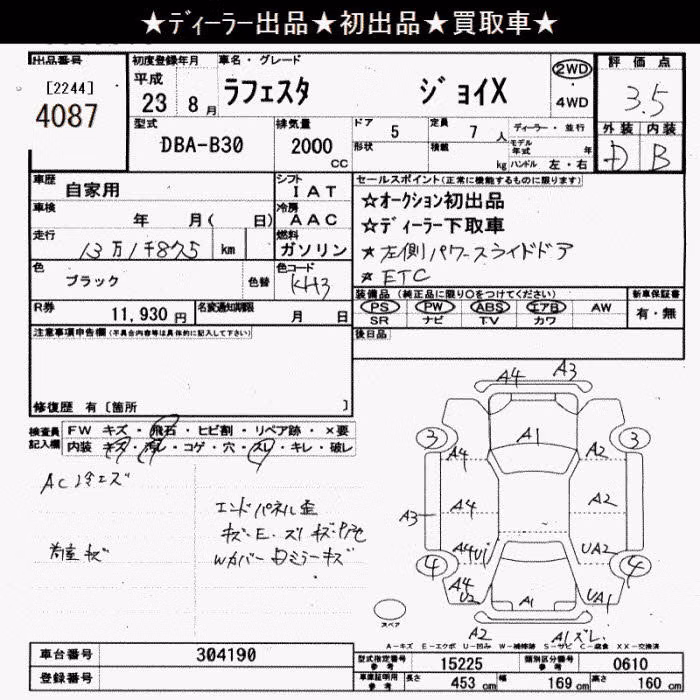 ★ディーラー出品★初出品★買取車★
出品番号
[2244]
4087
初度登録年月
平成
23 8月
車名・グレード
ラフェスタ ジョイX
2WD
・
4WD
評価点
3.5
外装 内装
D B
型式
DBA-B30
排気量
2000
CC
ドア 5
定員 7 人
ディーラー・並行
形状
積載 kg
モデル年式 年
ハンドル 左・右
車歴
自家用
シフト
IAT
車検
年 月( 日)
冷房
AAC
走行
13万1千875 km
燃料
ガソリン
セールスポイント(正常に機能するものに限ります)
☆オークション初出品
☆ディーラー下取車
★左側パワースライドドア
★ETC
色
ブラック
色替
色コード
KH3
R券
11,930円
名変通知期限
月 日
装備品 (純正品に限り○をつけてください)
PS PW ABS エアB AW
SR ナビ T.V カワ
新車保証書
有・無
注意事項申告欄(不具合内容等は具体的に記入して下さい)
後日品
修復歴 有 [箇所 ]
検査員
記入欄
FW キズ・飛石・ヒビ割・リペア跡・×要
内装 キズ・汚レ・コゲ・穴・スレ・キレ・破レ
AC冷エズ
エンドパネル歪
Wカバー
ミラーキズ
A4 A3
A1
3 3
A4 A2
A3 A4 A2
A4 UA2
4 4
A4
U2 A1 UA1
A2 A1ズレ
スペア
A-キズ E-エクボ U-凹み W-補修跡 S-サビ C-腐食 XX-交換済
車台番号
304190
登録番号
型式指定番号
参考
15225
類別区分番号
参考
0610
車庫証明用
参考
長さ 453 cm
幅 169 cm
高さ 160 cm